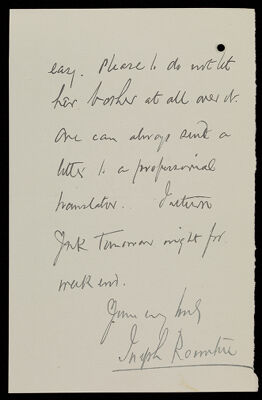 easy. Please to do not let
her bother at all over it.
One can always send a
letter to a professional
translator. I return
York tomorrow night for
week end.
Yours very truly
Joseph Rowntree